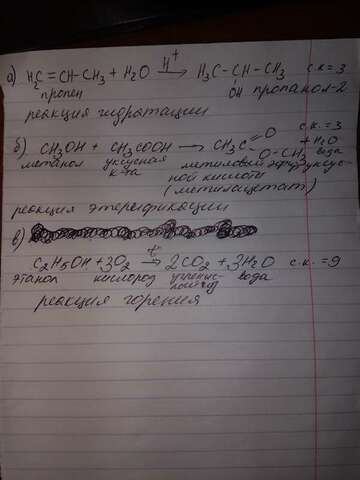 а) H₂C=CH-CH₃ + H₂O →(H⁺) H₃C-CH-CH₃ с.к=3
OH
пропен пропанол-2
реакция гидратации
б) CH₃OH + CH₃COOH → CH₃C(=O)O-CH₃ + H₂O с.к.=3
метанол уксусная метиловый эфир уксус- вода
к-та ной кислоты
(метилацетат)
реакция этерификации
в)
C₂H₅OH + 3O₂ →(t) 2CO₂ + 3H₂O с.к.=9
этанол кислород вода
реакция горения